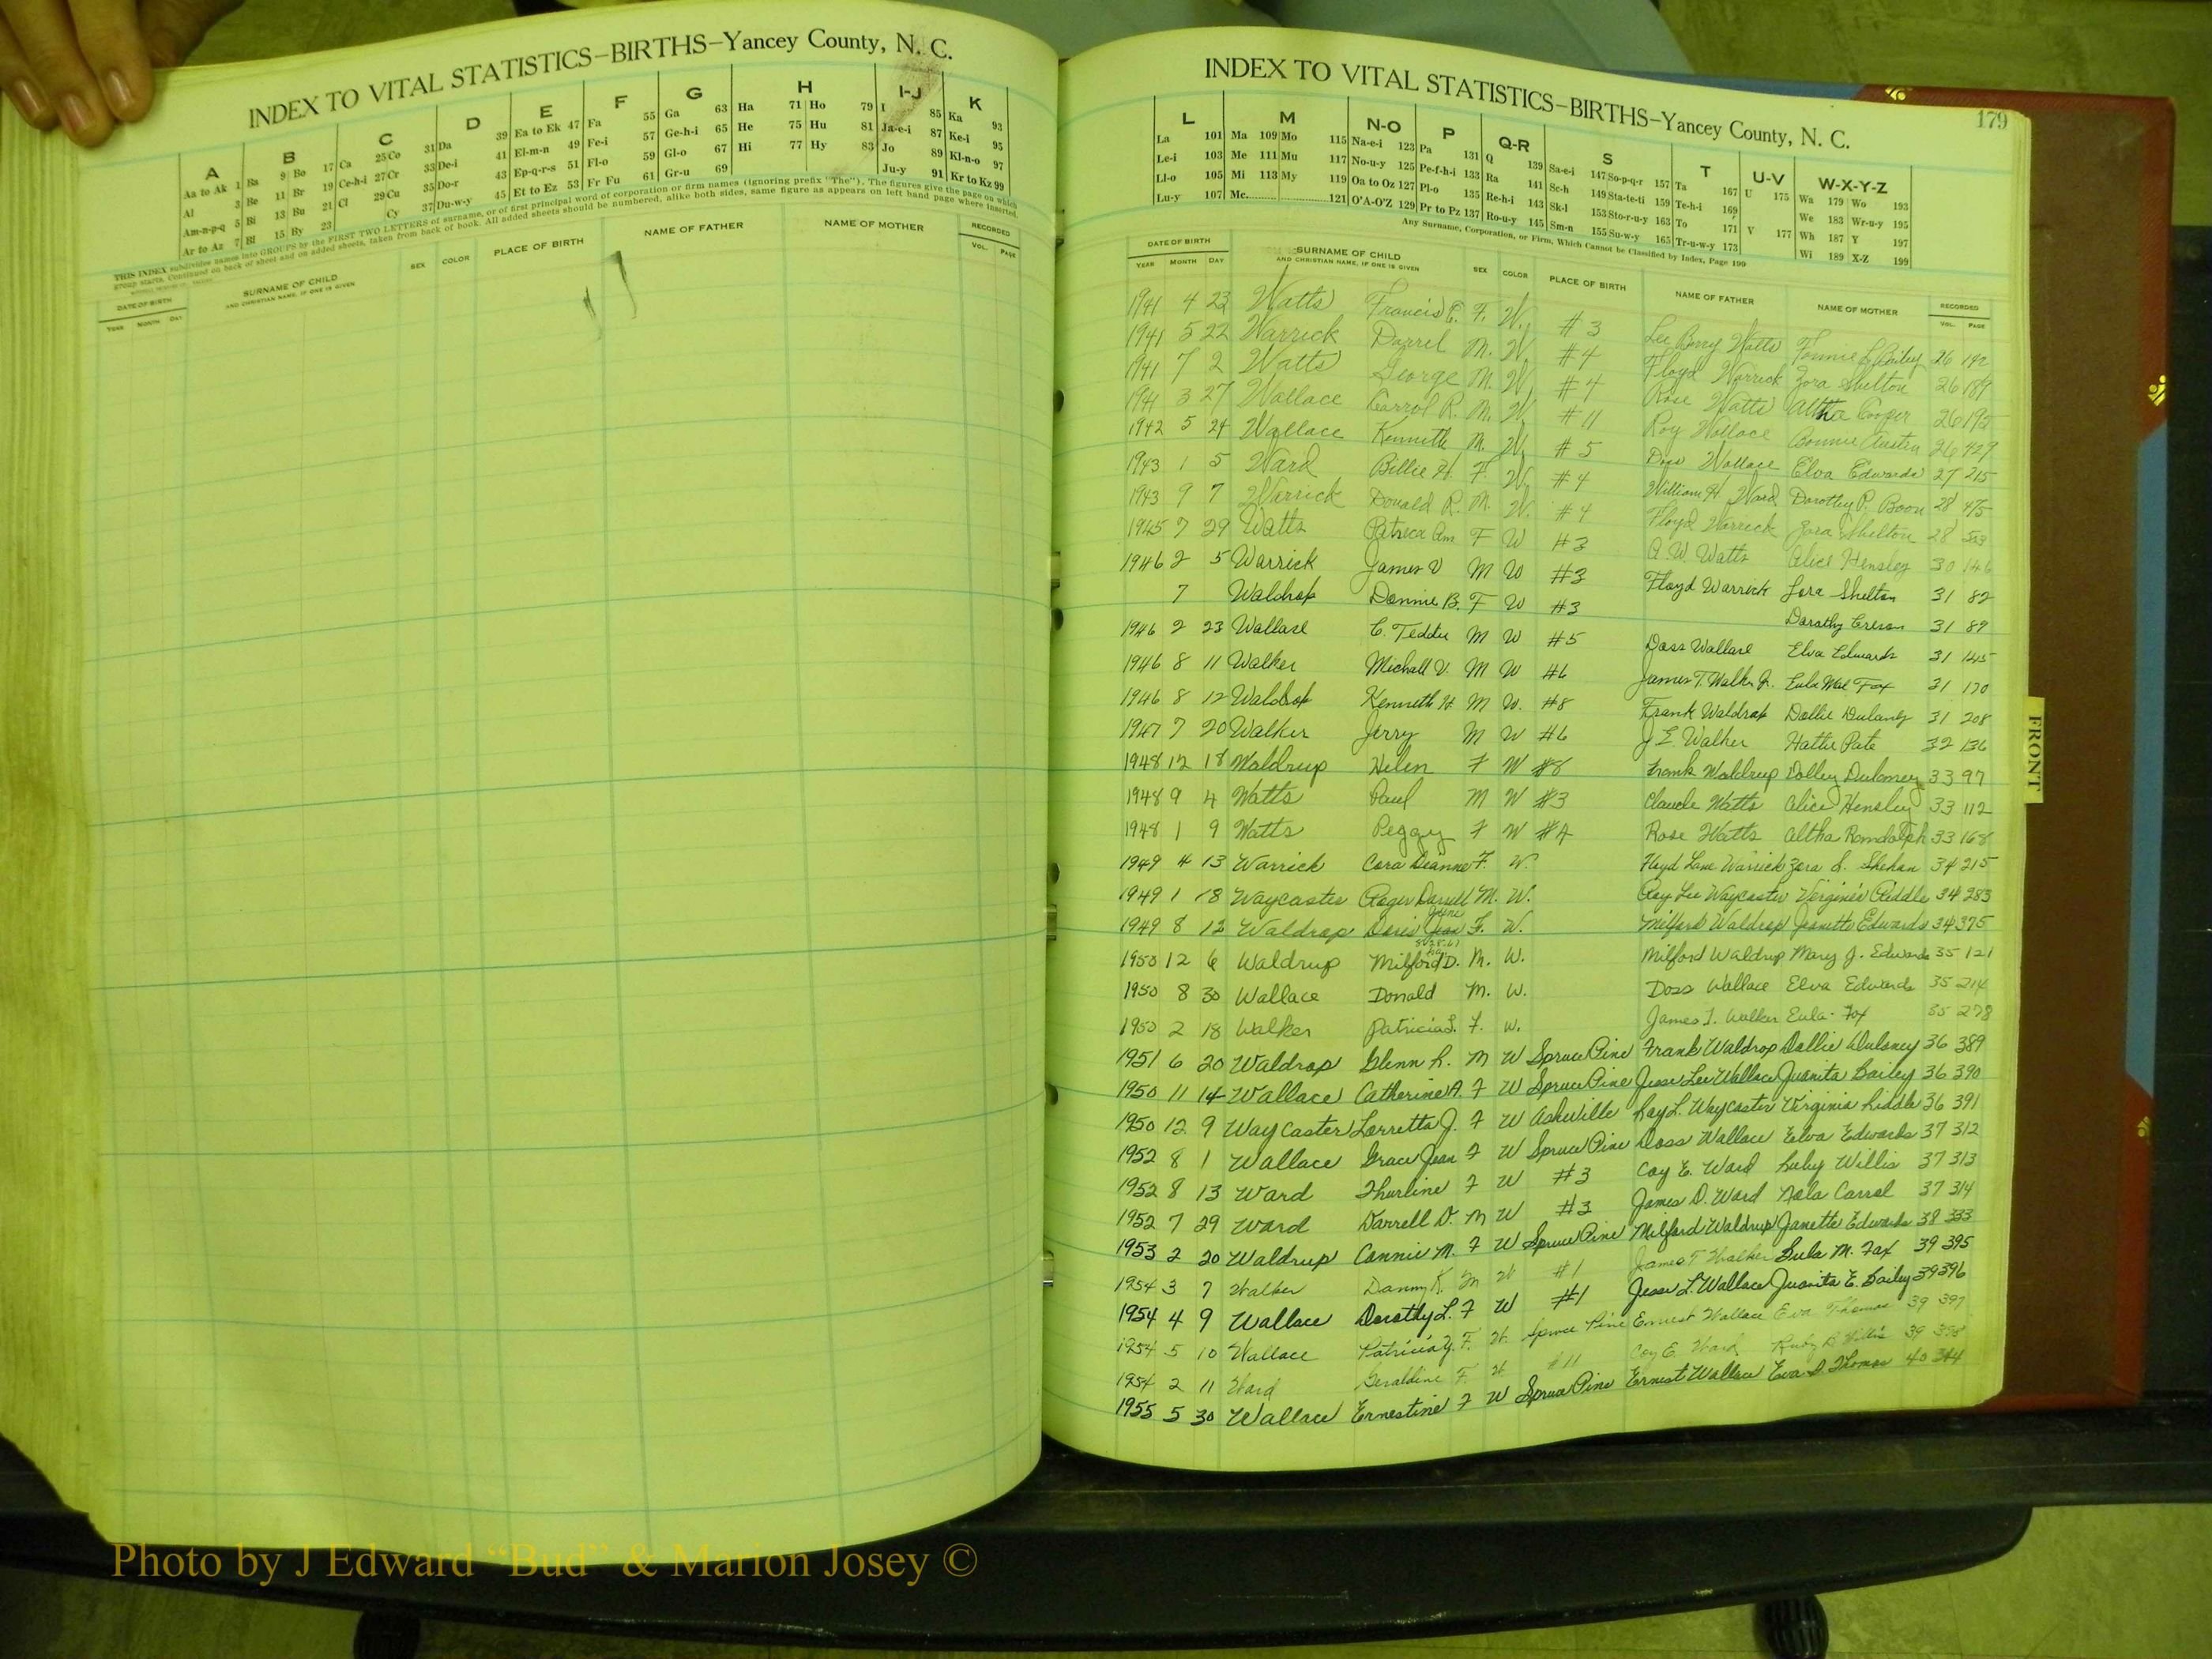 INDEX TO VITAL STATISTICS–BIRTHS–Yancey County, N. C.
A B C D E F G H I-J K
Aa to Ak 1 Ba 9 Bo 17 Ca 25 Co 31 Da 39 Ea to Ek 47 Fa 55 Ga 63 Ha 71 Ho 79 I 85 Ka 93
Al 3 Be 11 Br 19 Ce-h-i 27 Cr 33 De-i 41 El-m-n 49 Fe-i 57 Ge-h-i 65 He 75 Hu 81 Ja-e-i 87 Ke-i 95
Am-n-p-q 5 Bi 13 Bu 21 Cl 29 Cu 35 Do-r 43 Ep-q-r-s 51 Fl-o 59 Gl-o 67 Hi 77 Hy 83 Jo 89 Kl-n-o 97
Ar to Az 7 Bl 15 By 23 Cy 37 Du-w-y 45 Et to Ez 53 Fr Fu 61 Gr-u 69 Ju-y 91 Kr to Kz 99
THIS INDEX subdivides names into GROUPS by the FIRST TWO LETTERS of surname, or of first principal word of corporation or firm names (ignoring prefix "The"). The figures give the page on which
group starts. Continued on back of sheet and on added sheets, taken from back of book. All added sheets should be numbered, alike both sides, same figure as appears on left hand page where inserted.
DATE OF BIRTH SURNAME OF CHILD SEX COLOR PLACE OF BIRTH NAME OF FATHER NAME OF MOTHER RECORDED
YEAR MONTH DAY AND CHRISTIAN NAME, IF ONE IS GIVEN VOL. PAGE
179
INDEX TO VITAL STATISTICS–BIRTHS–Yancey County, N. C.
L M N-O P Q-R S T U-V W-X-Y-Z
La 101 Ma 109 Mo 115 Na-e-i 123 Pa 131 Q 139 Sa-e-i 147 So-p-q-r 157 Ta 167 U 175 Wa 179 Wo 193
Le-i 103 Me 111 Mu 117 No-u-y 125 Pe-f-h-i 133 Ra 141 Sc-h 149 Sta-te-ti 159 Te-h-i 169 We 183 Wr-u-y 195
Ll-o 105 Mi 113 My 119 Oa to Oz 127 Pl-o 135 Re-h-i 143 Sk-l 153 Sto-r-u-y 163 To 171 V 177 Wh 187 Y 197
Lu-y 107 Mc 121 O'A-O'Z 129 Pr to Pz 137 Ro-u-y 145 Sm-n 155 Su-w-y 165 Tr-u-w-y 173 Wi 189 X-Z 199
Any Surname, Corporation, or Firm, Which Cannot be Classified by Index, Page 190
DATE OF BIRTH SURNAME OF CHILD SEX COLOR PLACE OF BIRTH NAME OF FATHER NAME OF MOTHER RECORDED
YEAR MONTH DAY AND CHRISTIAN NAME, IF ONE IS GIVEN VOL. PAGE
1941 4 23 Watts Francis E. F. W. #3 Lee Watts Bailey 26
1941 5 22 Warrick Darrel M. W. #4 Floyd Warrick Zora Shelton 26 189
1941 7 2 Watts George M. W. #4 Rose Watts Altha Cooper 26
1941 3 27 Wallace Carrol R. M. W. #11 Roy Wallace Bonnie Austin 26 429
1942 5 24 Wallace Kenneth M. W. #5 Doss Wallace Elva Edwards 27 215
1943 1 5 Ward Billie H. F. W. #4 William H. Ward Dorothy P. Boon 28 475
1943 9 7 Warrick Donald R. M. W. #4 Floyd Warrick Zora Shelton 28
1945 7 29 Watts Patreca Ann F W #3 A. W. Watts Alice Hensley 30 146
1946 2 5 Warrick James V M W #3 Floyd Warrick Zora Shelton 31 82
7 Waldrop Donnie B. F W #3 Dorothy 31 89
1946 2 23 Wallace C. Teddie M W #5 Doss Wallace Elva Edwards 31 145
1946 8 11 Walker Michall V. M W #6 James T. Walker Jr. Eula Mae Fox 31 170
1946 8 12 Waldrop Kenneth H M W. #8 Frank Waldrop Dollie Dulany 31 208
1947 7 20 Walker Jerry M W #6 J E. Walker Hattie Pate 32 136
1948 12 18 Waldrup Helen F W #8 Frank Waldrup Dolley Dulaney 33 97
1948 9 4 Watts Paul M W #3 Claude Watts Alice Hensley 33 112
1948 1 9 Watts Peggy F W #4 Rose Watts Altha Randolph 33 168
1949 4 13 Warrick Cora Deanne F. W. Floyd Lane Warrick Zora S. Shehan 34 215
1949 1 18 Waycaster Roger Darrell M. W. Roy Lee Waycaster Virginia Riddle 34 283
1949 8 12 Waldrop Doris Jean June F. W. Milford Waldrop Jeanette Edwards 34 375
1950 12 6 Waldrup Milford D. M. W. Milford Waldrup Mary J. Edwards 35 121
1950 8 30 Wallace Donald M. W. Doss Wallace Elva Edwards 35 214
1950 2 18 Walker Patricia L. F. W. James T. Walker Eula Fox 35 278
1951 6 20 Waldrop Glenn R. M W Spruce Pine Frank Waldrop Dollie Dulaney 36 389
1950 11 14 Wallace Catherine A. F W Spruce Pine Jesse Lee Wallace Juanita Bailey 36 390
1950 12 9 Waycaster Lorretta J. F W Asheville Ray L. Waycaster Virginia Riddle 36 391
1952 8 1 Wallace Grace Jean F W Spruce Pine Doss Wallace Elva Edwards 37 312
1952 8 13 Ward Thurline F W #3 Coy E. Ward Ruby Willis 37 313
1952 7 29 Ward Darrell D. M W #3 James D. Ward Nola Carrol 37 314
1953 2 20 Waldrup Connie M. F W Spruce Pine Milford Waldrup Janette Edwards 38 333
1954 3 7 Walker Danny K. M W #1 James T Walker Eula M. Fox 39 395
1954 4 9 Wallace Dorothy L. F W #1 Jesse L. Wallace Juanita E. Bailey 39 396
1954 5 10 Wallace Patricia Y. F. W. Spruce Pine Ernest Wallace Eva Thomas 39 397
1954 2 11 Ward Geraldine F W #11 Coy E. Ward Ruby B Willis 39 398
1955 5 30 Wallace Ernestine F W Spruce Pine Ernest Wallace Eva D. Thomas 40 344
FRONT
Photo by J Edward “Bud” & Marion Josey ©